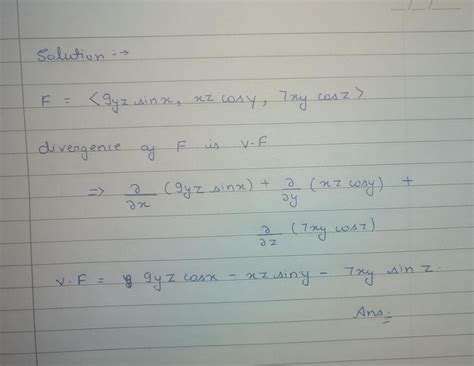 Solution :→
F = ⟨9yz sinx, xz cosy, 7xy cosz⟩
divergence of F is ∇·F
⇒ ∂/∂x (9yz sinx) + ∂/∂y (xz cosy) +
∂/∂z (7xy cosz)
∇·F = 9yz cosx − xz siny − 7xy sin z.
Ans: